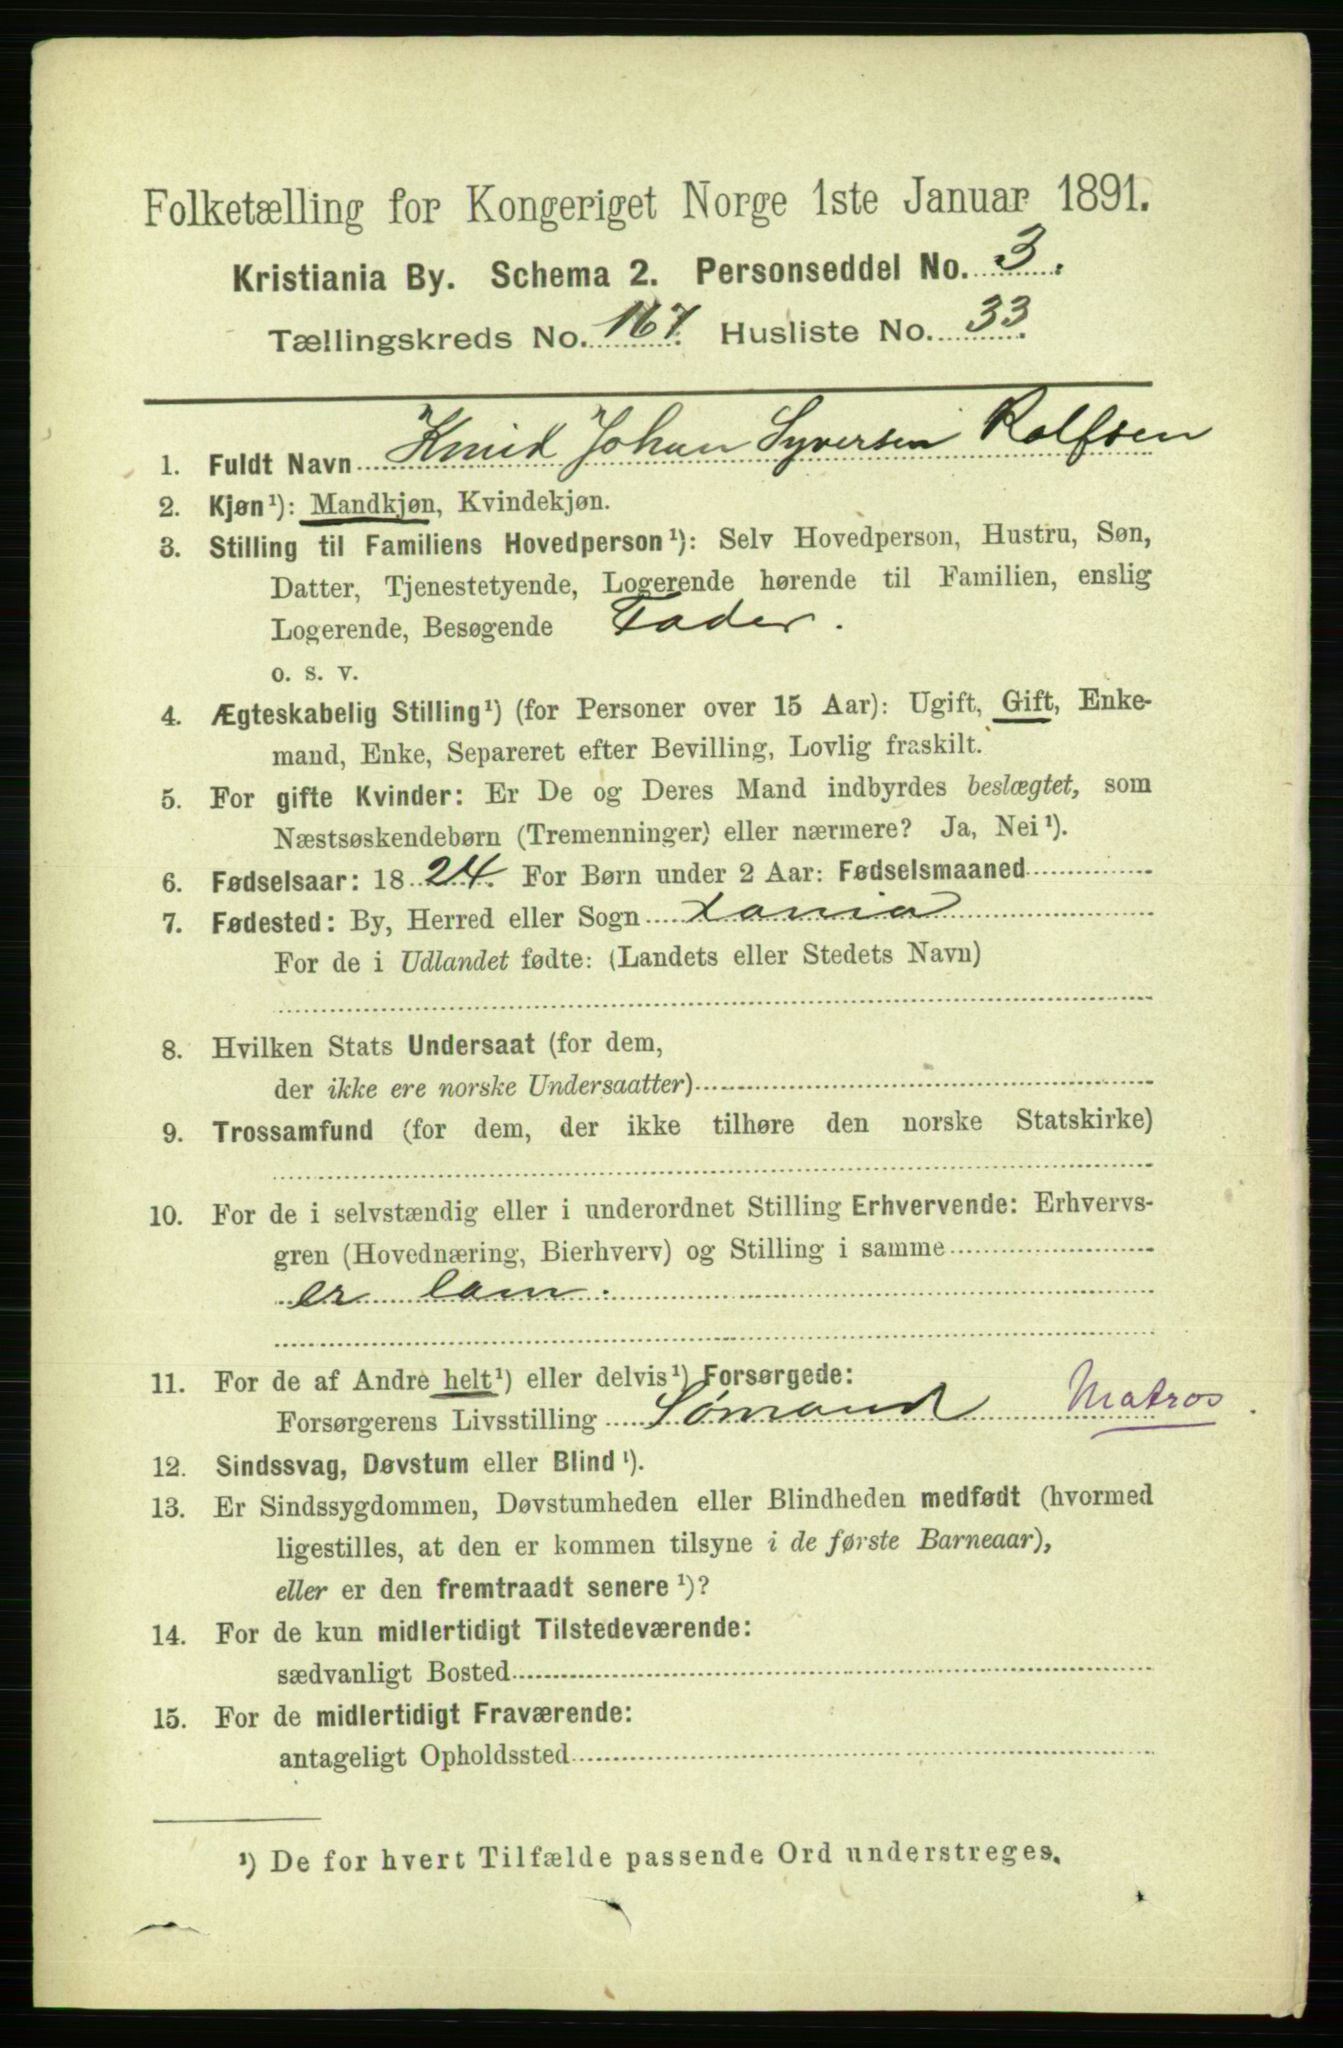 Folketælling for Kongeriget Norge 1ste Januar 1891.
Kristiania By. Schema 2. Personseddel No. 3.
Tællingskreds No. 167. Husliste No. 33.
1. Fuldt Navn Knud Johan Syversen Rolfsen
2. Kjøn¹): Mandkjøn, Kvindekjøn.
3. Stilling til Familiens Hovedperson¹): Selv Hovedperson, Hustru, Søn,
Datter, Tjenestetyende, Logerende hørende til Familien, enslig
Logerende, Besøgende Fader.
o. s. v.
4. Ægteskabelig Stilling¹) (for Personer over 15 Aar): Ugift, Gift, Enke-
mand, Enke, Separeret efter Bevilling, Lovlig fraskilt.
5. For gifte Kvinder: Er De og Deres Mand indbyrdes beslægtet, som
Næstsøskendebørn (Tremenninger) eller nærmere? Ja, Nei¹).
6. Fødselsaar: 18 24. For Børn under 2 Aar: Fødselsmaaned
7. Fødested: By, Herred eller Sogn Xania
For de i Udlandet fødte: (Landets eller Stedets Navn)
8. Hvilken Stats Undersaat (for dem,
der ikke ere norske Undersaatter)
9. Trossamfund (for dem, der ikke tilhøre den norske Statskirke)
10. For de i selvstændig eller i underordnet Stilling Erhvervende: Erhvervs-
gren (Hovednæring, Bierhverv) og Stilling i samme
er lam.
11. For de af Andre helt¹) eller delvis¹) Forsørgede:
Forsørgerens Livsstilling Sømand Matros.
12. Sindssvag, Døvstum eller Blind¹).
13. Er Sindssygdommen, Døvstumheden eller Blindheden medfødt (hvormed
ligestilles, at den er kommen tilsyne i de første Barneaar),
eller er den fremtraadt senere¹)?
14. For de kun midlertidigt Tilstedeværende:
sædvanligt Bosted
15. For de midlertidigt Fraværende:
antageligt Opholdssted
¹) De for hvert Tilfælde passende Ord understreges.